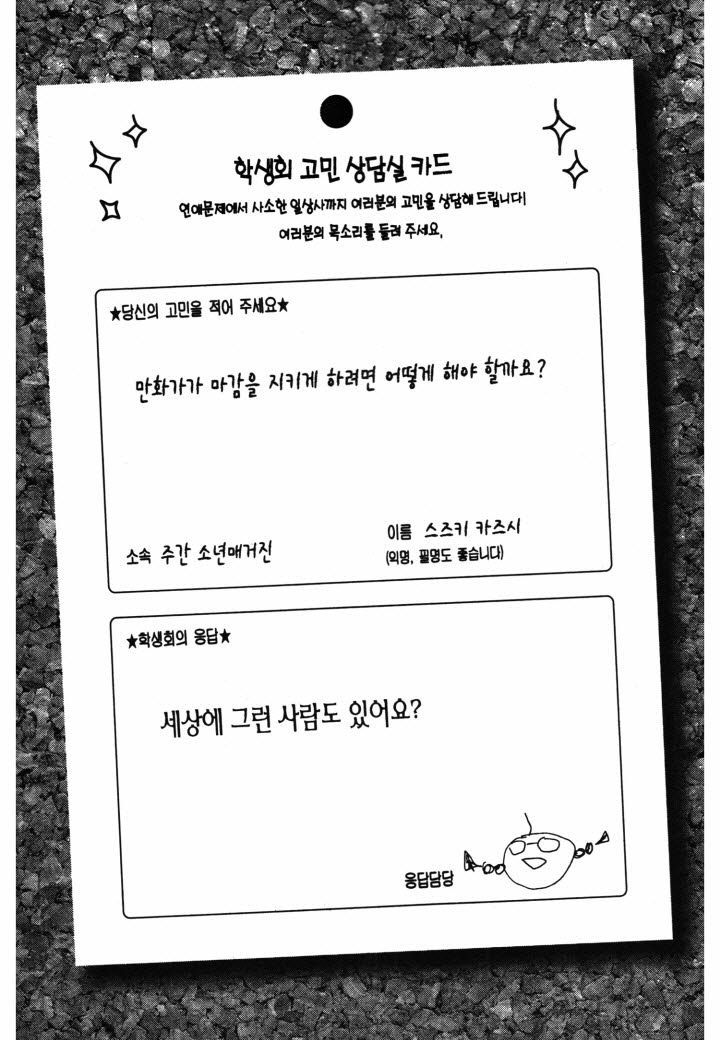 학생회 고민 상담실 카드
연애문제에서 사소한 일상사까지 여러분의 고민을 상담해 드립니다!
여러분의 목소리를 들려 주세요.
★당신의 고민을 적어 주세요★
만화가가 마감을 지키게 하려면 어떻게 해야 할까요?
소속 주간 소년매거진
이름 스즈키 카즈시
(익명, 필명도 좋습니다)
★학생회의 응답★
세상에 그런 사람도 있어요?
응답담당